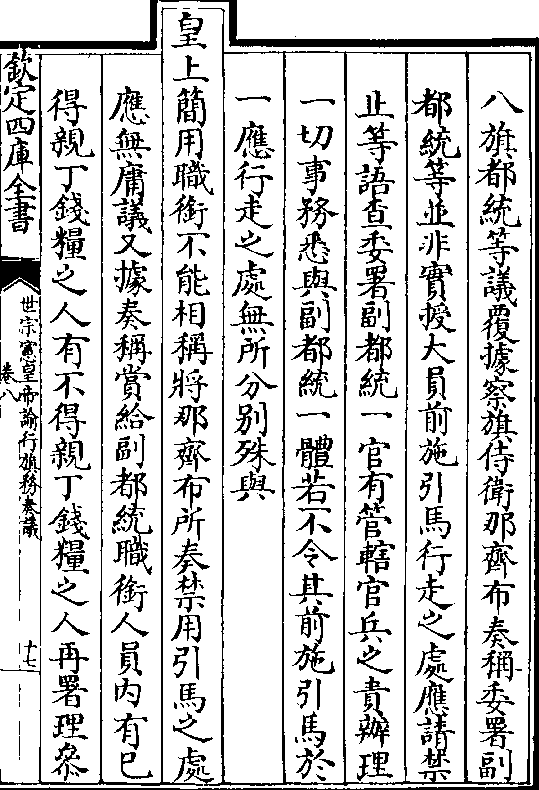 八旗都統等議覆據察旗侍衛那齊布奏稱委署副
都統等並非實授大員前施引馬行走之處應請禁
止等語查委署副都統一官有管轄官兵之責辦理
一切事務悉與副都統一體若不令其前施引馬於
一應行走之處無所分別殊與
皇上簡用職銜不能相稱將那齊布所奏禁用引馬之處
應無庸議又據奏稱賞給副都統職銜人員内有已
得親丁錢糧之人有不得親丁錢糧之人再署理叅
欽定四庫全書
世宗憲皇帝諭行旗務奏議
卷八
十七